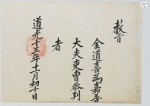 教旨
金道喜為嘉善
大夫東曹參判
者
道光十三年十二月初十日